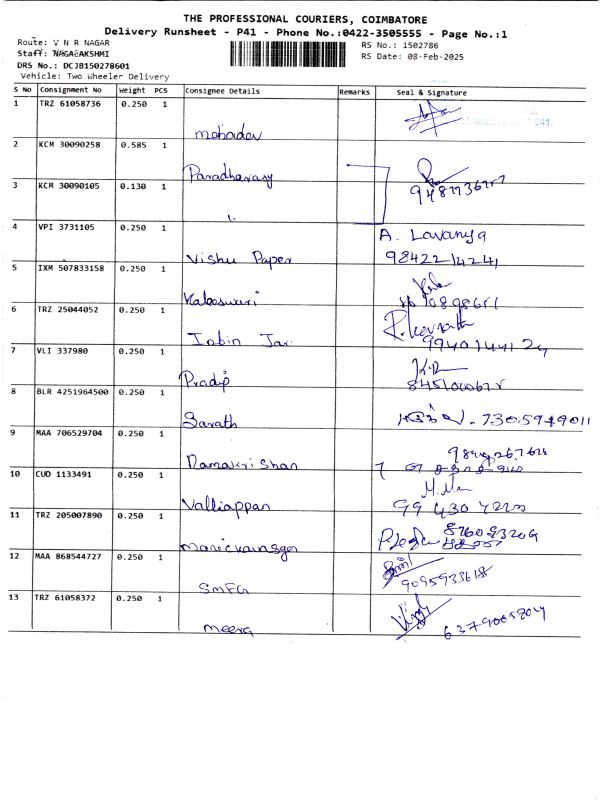 THE PROFESSIONAL COURIERS, COIMBATORE
Delivery Runsheet - P41 - Phone No.:0422-3505555 - Page No.:1
Route: V N R NAGAR
RS No.: 1502786
Staff: NAGALAKSHMI
RS Date: 08-Feb-2025
DRS No.: DCJB150278601
Vehicle: Two Wheeler Delivery
S No Consignment No Weight PCS Consignee Details Remarks Seal & Signature
1 TRZ 61058736 0.250 1
mahadev
2 KCM 30090258 0.585 1
Paradharasy
3 KCM 30090105 0.130 1
4 VPI 3731105 0.250 1 A. Lavanya
Vishu Paper 9842214241
5 IXM 507833158 0.250 1
6 TRZ 25044052 0.250 1
Jobin Jar
9940144124
7 VLI 337980 0.250 1
Pradip
8 BLR 4251964500 0.250 1
Sarath 7305949011
9 MAA 706529704 0.250 1
Ramakrishan
10 CUD 1133491 0.250 1
Valliappan
11 TRZ 205007890 0.250 1
12 MAA 868544727 0.250 1
SMFG
13 TRZ 61058372 0.250 1
meera